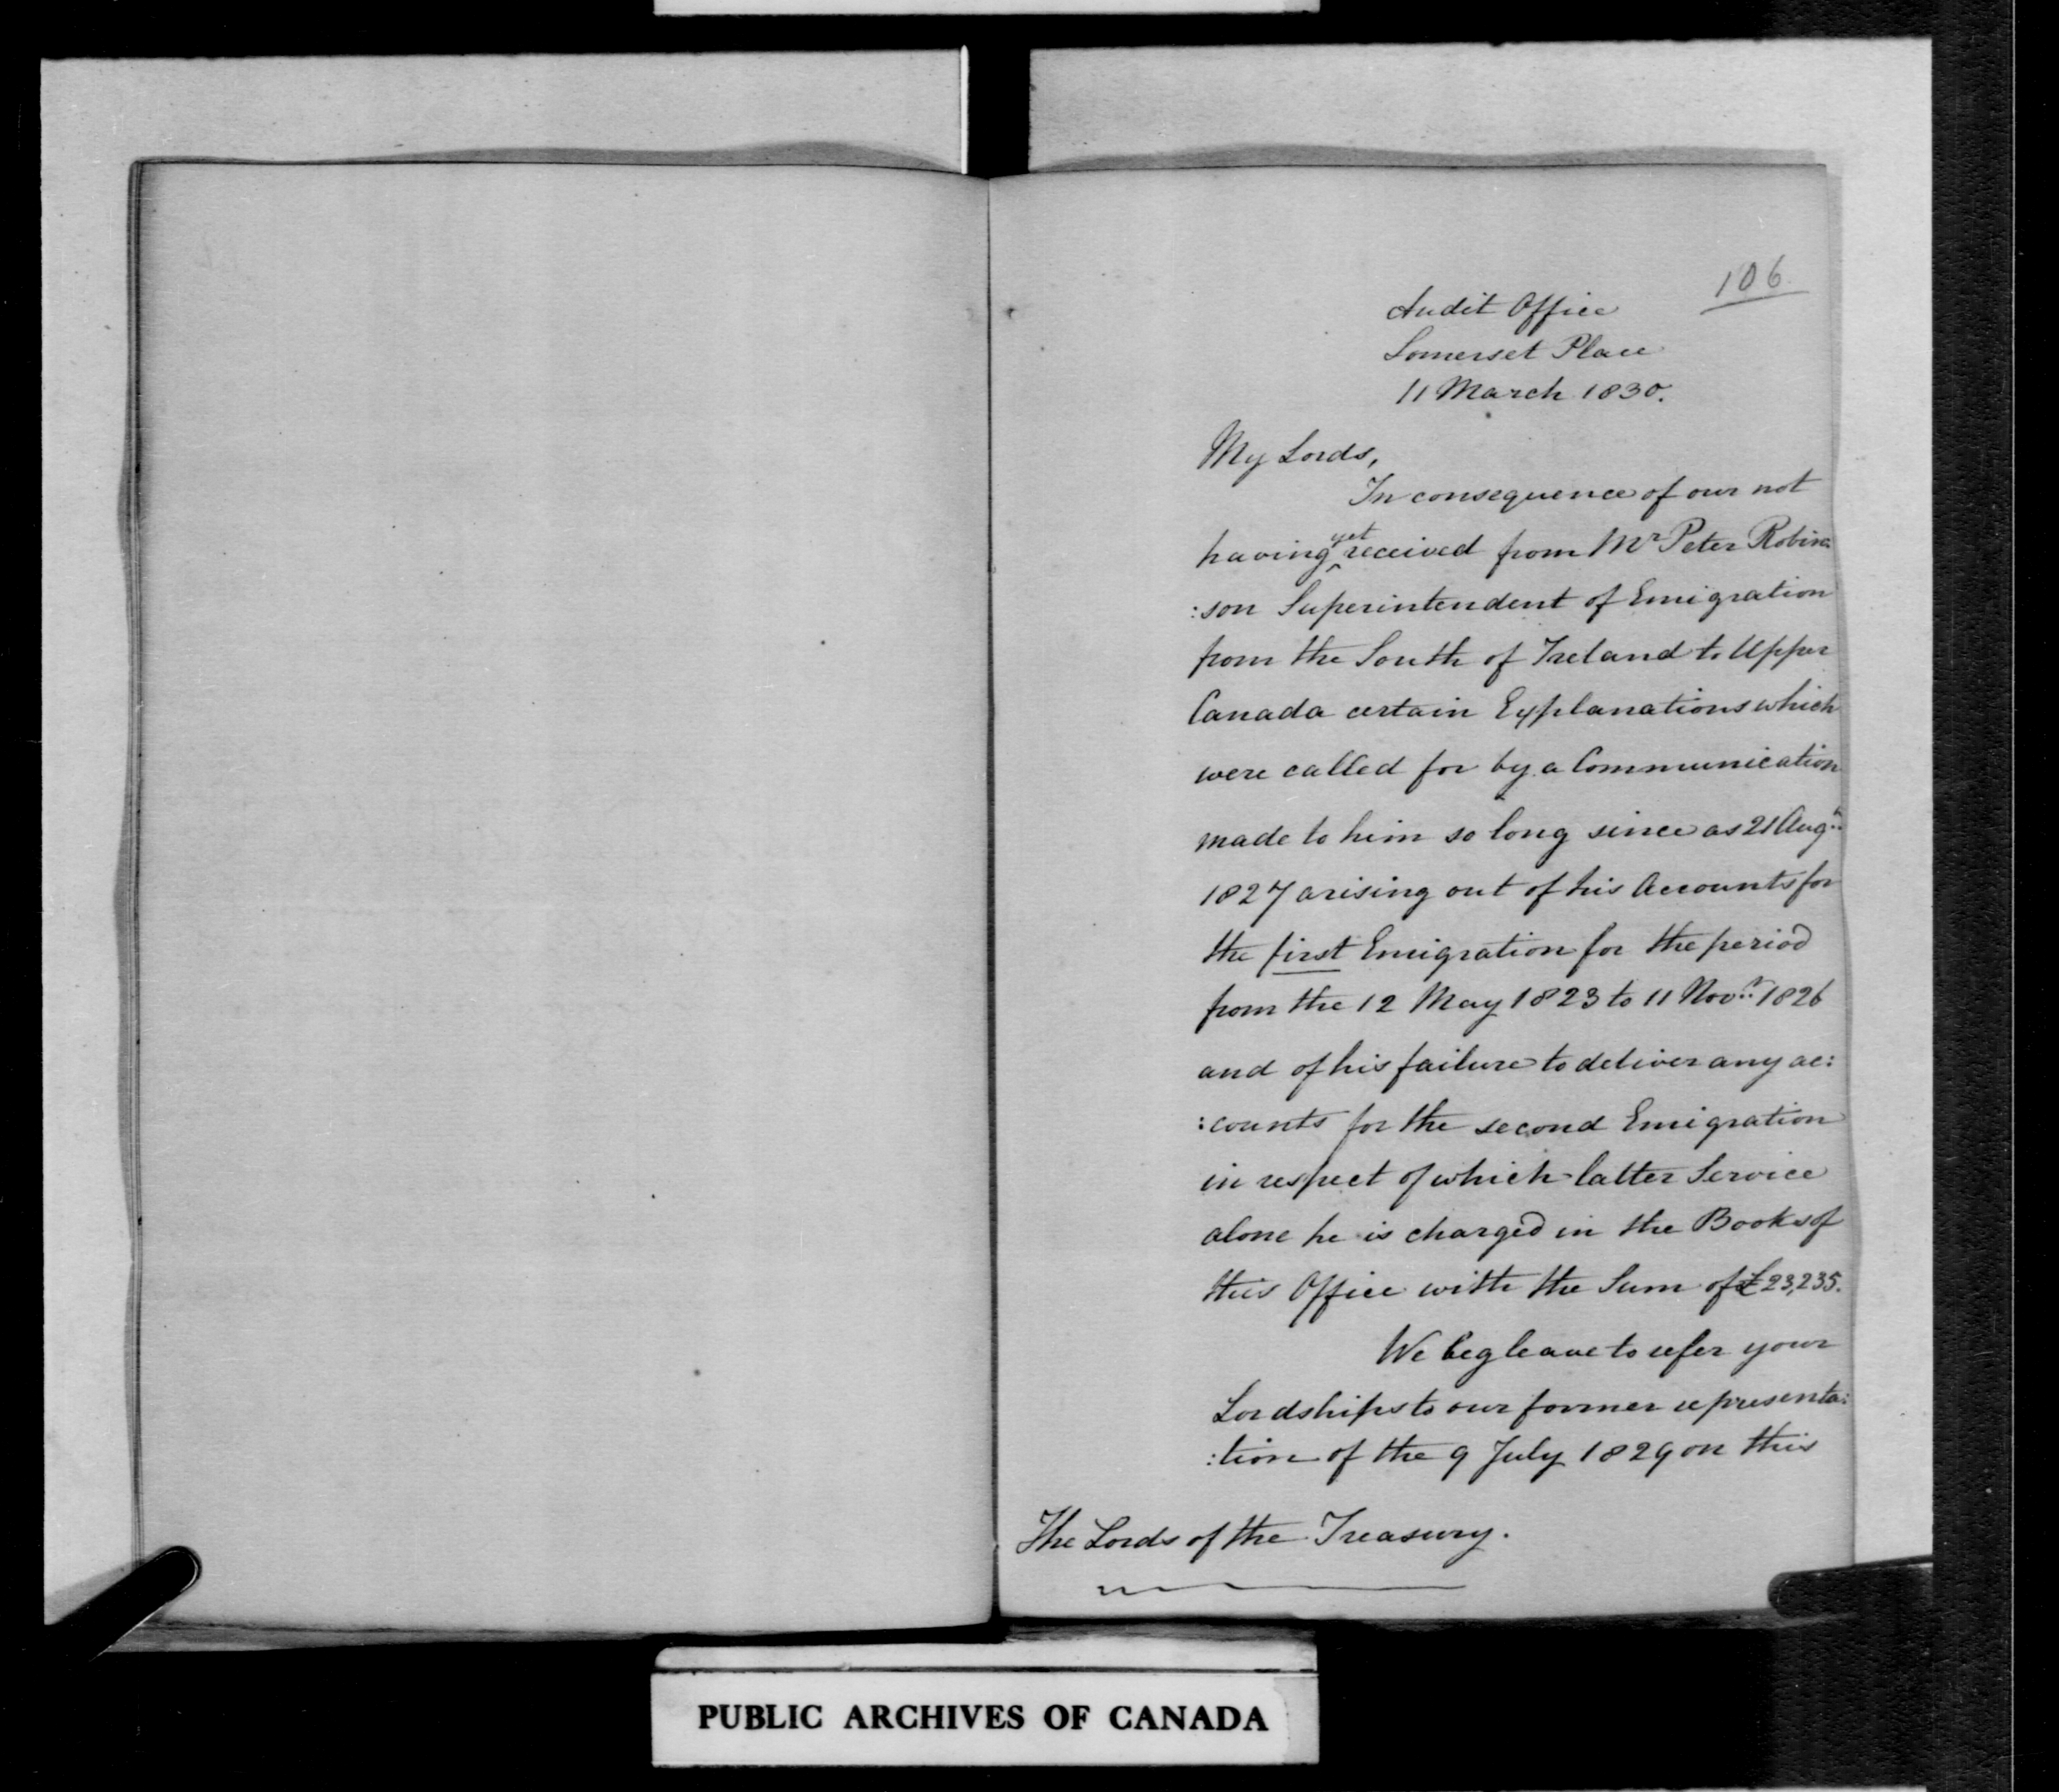 106
Audit Office
Somerset Place
11 March 1830.
My Lords,
In consequence of our not
having yet received from Mr Peter Robin:
:son Superintendent of Emigration
from the South of Ireland to Upper
Canada certain Explanations which
were called for by a Communication
made to him so long since as 21 Augt
1827 arising out of his Accounts for
the first Emigration for the period
from the 12 May 1823 to 11 Novr 1826
and of his failure to deliver any ac:
:counts for the second Emigration
in respect of which latter Service
alone he is charged in the Books of
this Office with the Sum of £23,235.
We beg leave to refer your
Lordships to our former representa:
:tion of the 9 July 1829 on this
The Lords of the Treasury.
PUBLIC ARCHIVES OF CANADA